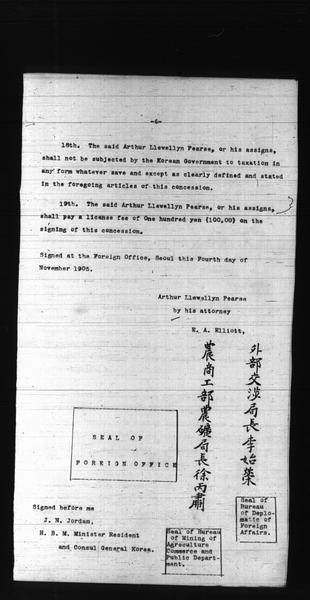 -6-
18th. The said Arthur Llewellyn Pearse, or his assigns,
shall not be subjected by the Korean Government to taxation in
any form whatever save and except as clearly defined and stated
in the foregoing articles of this concession.
19th. The said Arthur Llewellyn Pearse, or his assigns,
shall pay a license fee of One hundred yen (100.00) on the
signing of this concession.
Signed at the Foreign Office, Seoul this Fourth day of
November 1905.
Arthur Llewellyn Pearse
by his attorney
E. A. Elliott,
外部交涉局長李始榮
農商工部農鑛局長徐丙肅
SEAL OF
FOREIGN OFFICE
Signed before me
J. N. Jordan,
H. B. M. Minister Resident
and Consul General Korea.
Seal of Bureau
of Mining of
Agriculture
Commerce and
Public Depart-
ment.
Seal of
Bureau
of Deplo-
matic of
Foreign
Affairs.